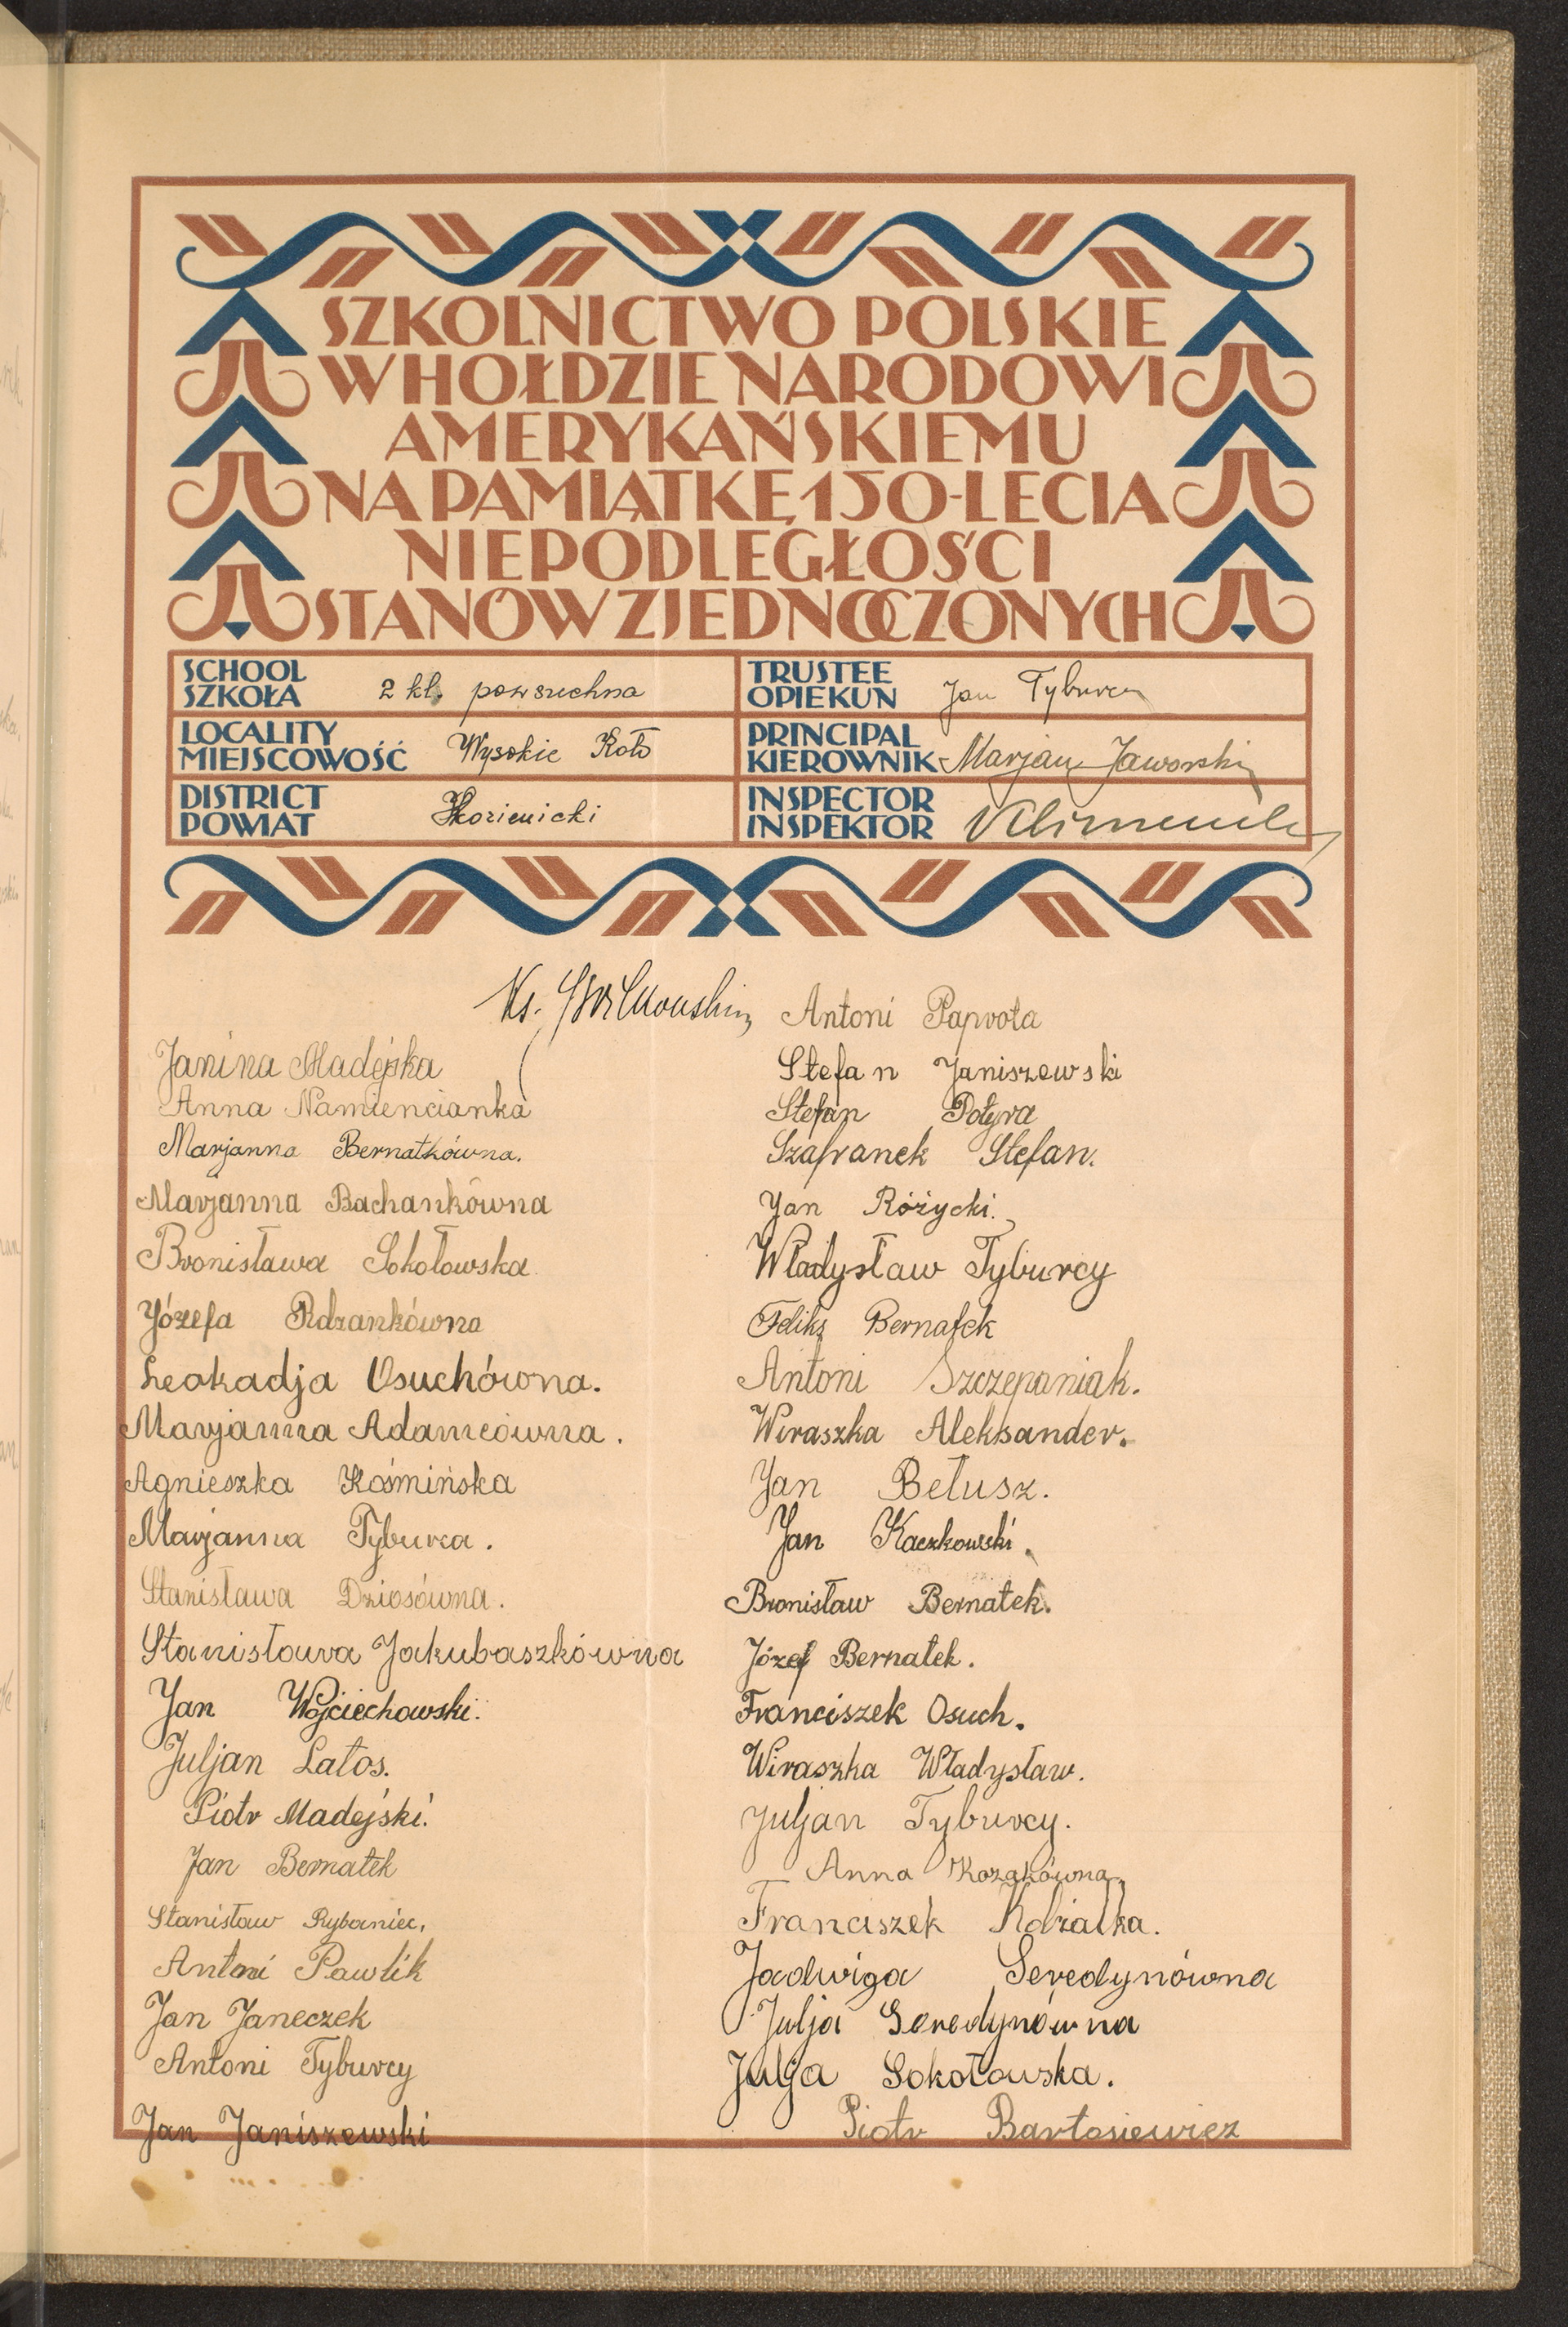 SZKOLNICTWO POLSKIE
W HOŁDZIE NARODOWI
AMERYKAŃSKIEMU
NA PAMIĄTKĘ 150-LECIA
NIEPODLEGŁOŚCI
STANÓW ZJEDNOCZONYCH
SCHOOL
SZKOŁA
2 kl. powszechna
TRUSTEE
OPIEKUN
Jan Tyburcy
LOCALITY
MIEJSCOWOŚĆ
Wysokie Koło
PRINCIPAL
KIEROWNIK
Marjan Jaworski
DISTRICT
POWIAT
Kozienicki
INSPECTOR
INSPEKTOR
Ks.
Janina Madejska
Anna Namiencianka
Marjanna Bernatkówna.
Marjanna Bachankówna
Bronisława Sokołowska
Józefa Rdzankówna
Leokadja Osuchówna.
Marjanna Adamcówna.
Agnieszka Kośmińska
Marjanna Tyburca.
Stanisława Dziosówna.
Stanisława Jakubaszkówna
Jan Wojciechowski.
Juljan Latos.
Piotr Madejski.
Jan Bernatek
Stanisław Rybaniec,
Antoni Pawlik
Jan Janeczek
Antoni Tyburcy
Jan Janiszewski
Antoni Papvota
Stefan Janiszewski
Stefan Potyra
Szafranek Stefan.
Jan Różycki.
Władysław Tyburcy
Feliks Bernatek
Antoni Szczepaniak.
Wiraszka Aleksander.
Jan Bełusz.
Jan Kaczkowski.
Bronisław Bernatek.
Józef Bernatek.
Franciszek Osuch.
Wiraszka Władysław.
Juljan Tyburcy.
Anna Kozakówna
Franciszek Kobiałka.
Jadwiga Seredynówna
Julja Seredynówna
Julja Sokołowska.
Piotr Bartosiewicz